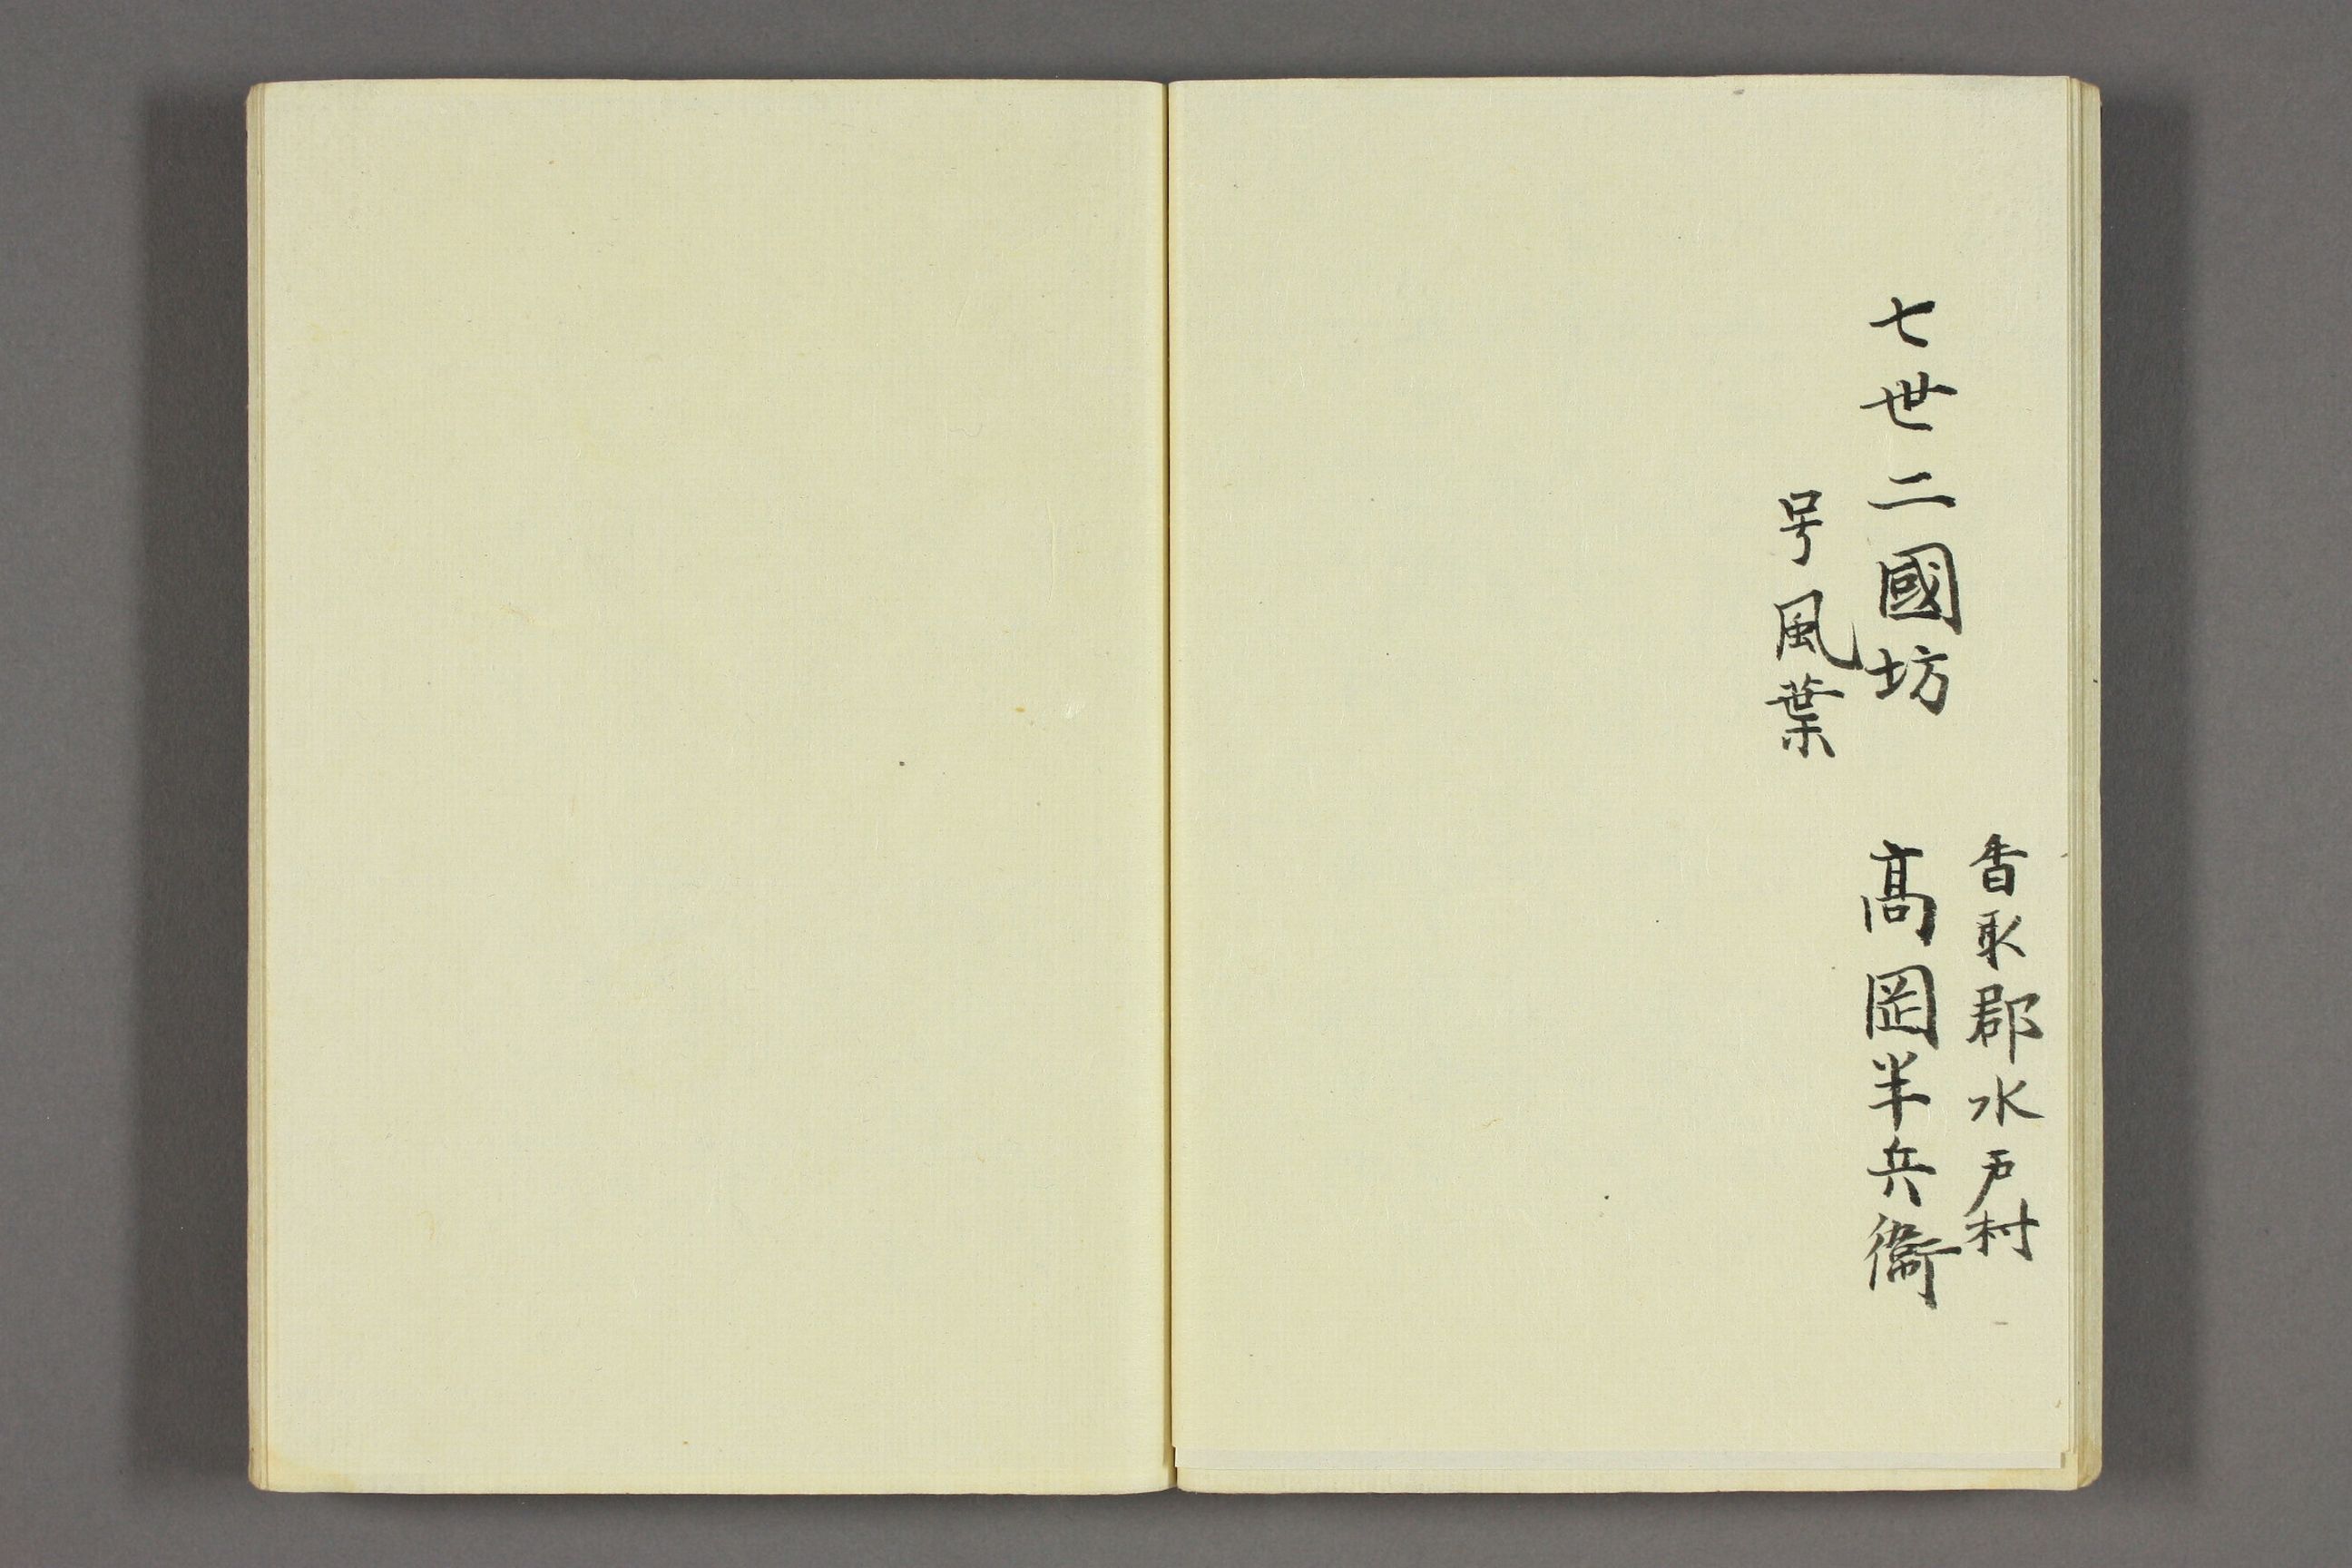 香取郡水戸村
七世二國坊　髙岡半兵衞
号風葉